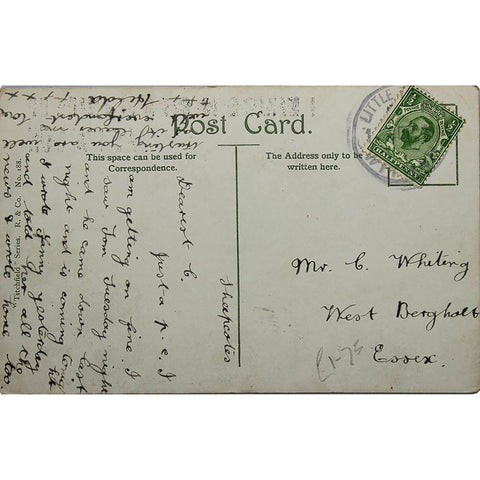 Post Card.
This space can be used for
Correspondence.
The Address only to be
written here.
LITTLE
HALFPENNY
Mr. C. Whiting
West Bergholt
Essex.
£1-75
"Titchfield" Series. R. & Co. No. 188.
Shapcotes
Dearest C.
Just a p.c. I
am getting on fine. I
saw Tom Tuesday night
and he came down last
night and is coming to
I wrote Jenny yesterday
and told her all the
news & wrote home too.
trusting you are well
as it leaves me
fondest love
Hilda x x x
x x x